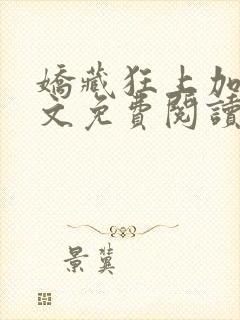 嬌藏狂上加
文免費閱讀
景冀